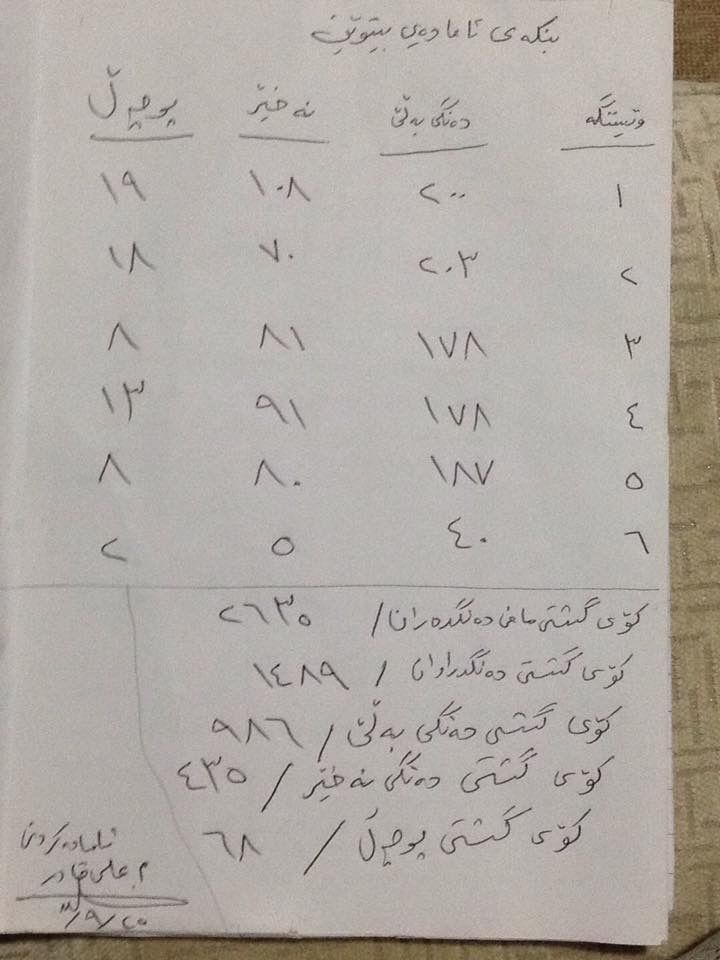 بنکەی ئامادەیی بیتوێن
وێستگە دەنگی بەڵێ نەخێر پوچەڵ
١ ٢٠٠ ١٠٨ ١٩
٢ ٢٠٣ ٧٠ ١٨
٣ ١٧٨ ٨١ ٨
٤ ١٧٨ ٩١ ١٣
٥ ١٨٧ ٨٠ ٨
٦ ٤٠ ٥ ٢
کۆی گشتی مافی دەنگدەران / ٢٦٣٥
کۆی گشتی دەنگدراوان / ١٤٨٩
کۆی گشتی دەنگی بەڵێ / ٩٨٦
کۆی گشتی دەنگی نەخێر / ٤٣٥
کۆی گشتی پوچەڵ / ٦٨
ئامادەکردن
م.علی قادر